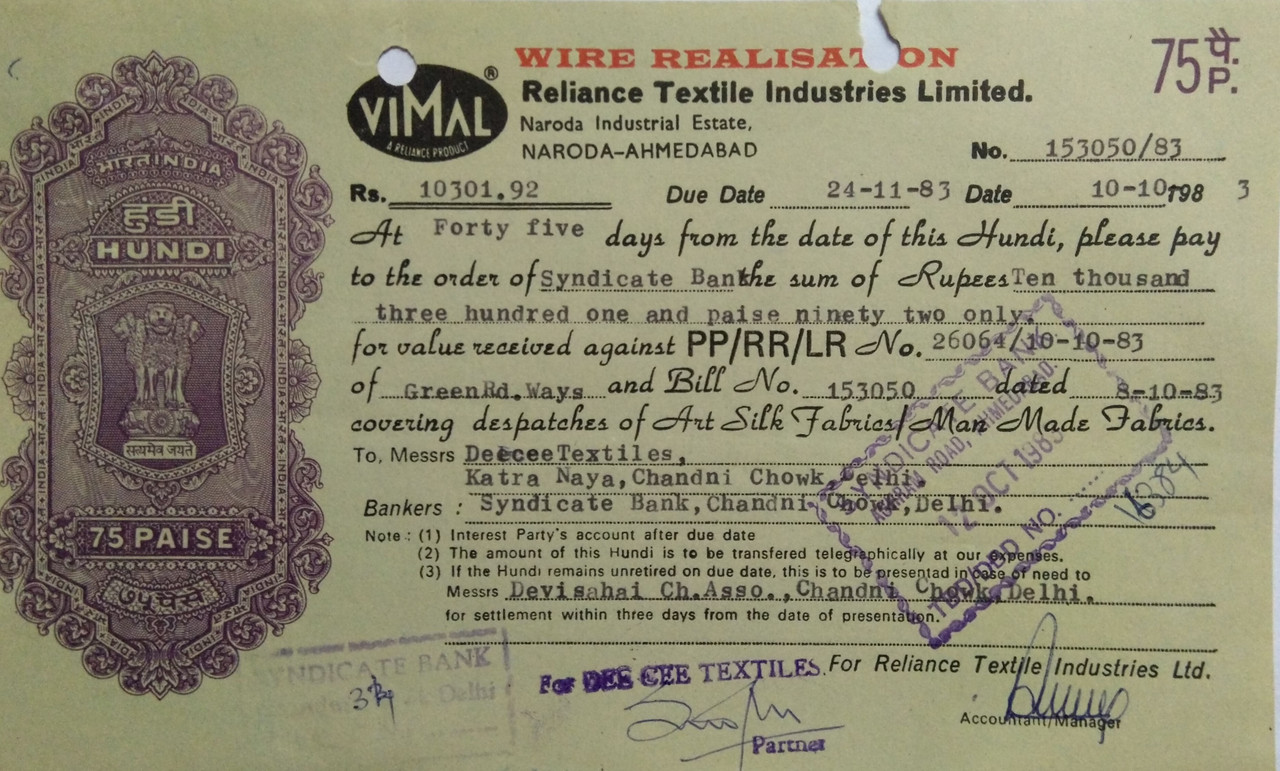 WIRE REALISAT ON
75 पै.
P.
VIMAL ®
A RELIANCE PRODUCT
Reliance Textile Industries Limited.
Naroda Industrial Estate,
NARODA-AHMEDABAD
No. 153050/83
Rs. 10301.92 Due Date 24-11-83 Date 10-10-198 3
At Forty five days from the date of this Hundi, please pay
to the order of Syndicate Bank the sum of Rupees Ten thousand
three hundred one and paise ninety two only.
for value received against PP/RR/LR No. 26064/10-10-83
of Green Rd. Ways and Bill No. 153050 dated 8-10-83
covering despatches of Art Silk Fabrics/Man Made Fabrics.
To, Messrs DeeceeTextiles,
Katra Naya, Chandni Chowk, elhi.
Bankers : Syndicate Bank, Chandni Chowk, Delhi.
Note : (1) Interest Party's account after due date
(2) The amount of this Hundi is to be transfered telegraphically at our expenses.
(3) If the Hundi remains unretired on due date, this is to be presentad in case of need to
Messrs Devisahai Ch.Asso., Chandni Chowk, Delhi.
for settlement within three days from the date of presentation.
For DEE CEE TEXTILES. For Reliance Textile Industries Ltd.
Partner
Accountant/Manager
भारत INDIA
हुंडी
HUNDI
सत्यमेव जयते
75 PAISE
७५ पैसे
SYNDICATE BANK
ROAD, AHMEDABAD.
12 OCT 1983
NO.
16384
SYNDICATE BANK
Delhi